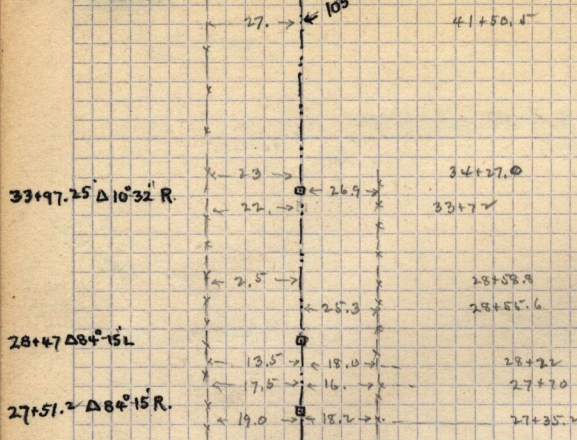 105
27. 41+50.5
23 34+27.0
33+97.25 Δ 10°32' R. 26.9
22. 33+72
2.5 28+58.8
25.3 28+55.6
28+47 Δ84°-15' L
13.5 18.0 28+22
17.5 16. 27+70
27+51.2 Δ 84°-15' R.
19.0 18.2 27+35.2